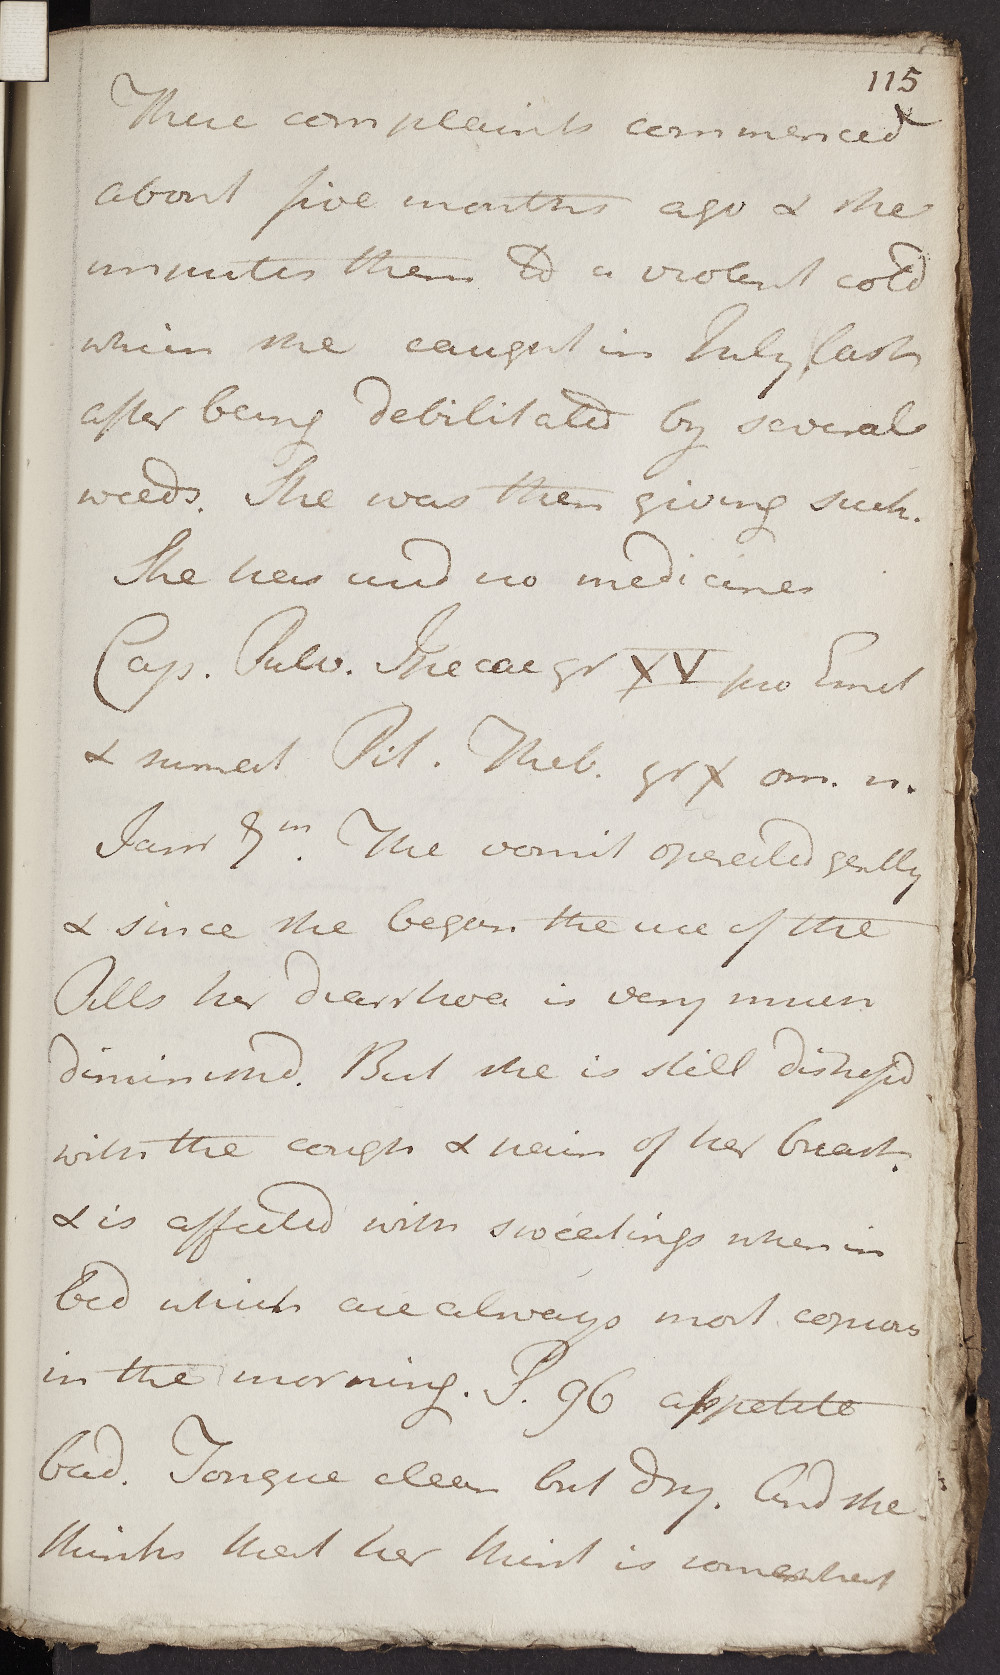 115
These complaints commenced
about five months ago & she
imputes them to a violent cold
which she caught in July last
after being debilitated by several
weeds. She was then giving suck.
She has used no medicines
Cap. Pulv. Ipecac gr XV pro Emet
& sumat Pil. Theb. gr X om. n.
Janr 7th. The vomit operated gently
& since she began the use of the
Pills her diarrhoea is very much
diminished. But she is still distress'd
with the cough & pain of her breast.
& is affected with sweatings when in
bed which are always most copious
in the morning. P. 96 appetite
bad. Tongue clean but dry. And she
thinks that her thirst is somewhat